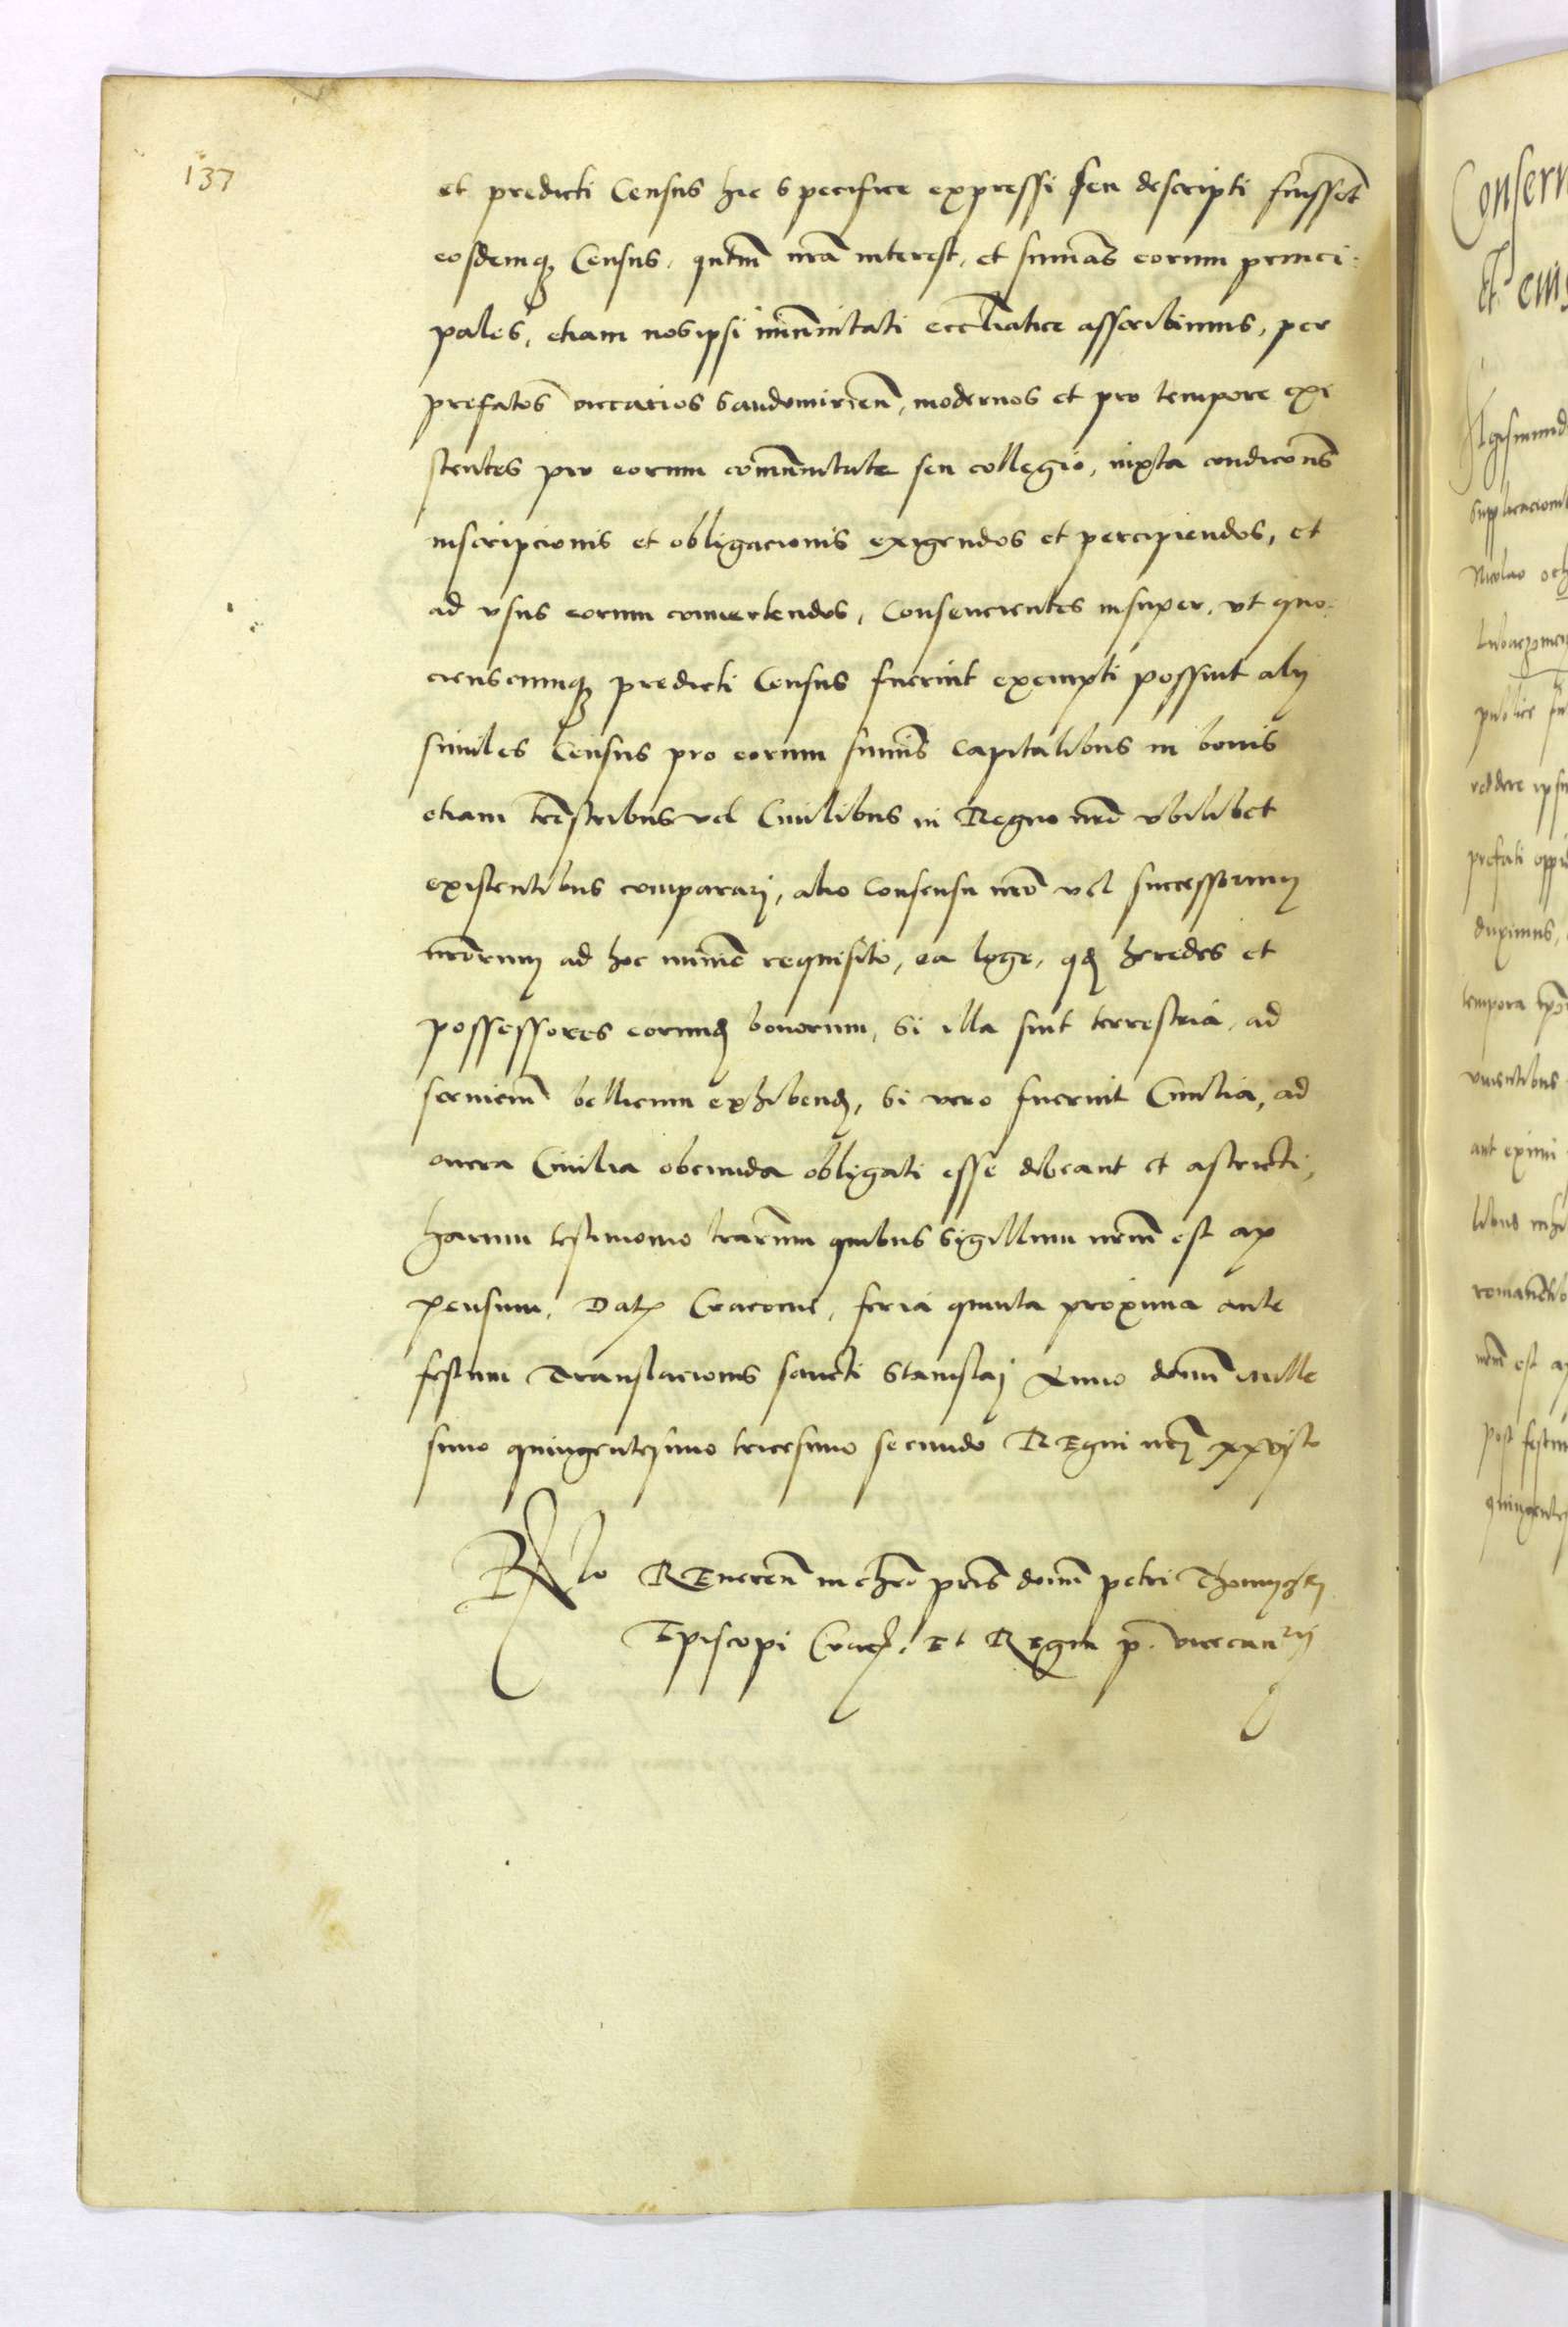 137
et predicti Census hic specifice expressi seu descripti fuissēt
eosdemq; Census, qntm̄ nrā interest, et summas eorum princi:
pales, etiam nos ipsi immunitati eccliatice asscribimus, per
prefatos viccarios Sandomirien̄, modernos et pro tempore exi
stentes pro eorum communitate seu collegio, iuxta condicōns
inscripcionis et obligacionis exigendos et percipiendos, et
ad vsus eorum convertendos, Consencientes insuper, vt quo:
cienscumq; predicti Census fuerint exempti possint alij
similes Census pro eorum summis capitalibus in bonis
etiam trēstribus vel Ciuilibus in Regno nrō vbilibet
existentibus comparari, alio Consensu nrō vel successorum
nrōrum ad hoc minime requisito, ea lege, qd heredes et
possessores eorund bonorum, si illa sint terrestria, ad
seruicium bellicum exhibend, si vero fuerint Ciuilia, ad
onera Ciuilia obeunda obligati esse debeant et astricti,
harum testimonio lrarum quibus Sigillum nrm̄ est ap
pensum, Dat Cracouie, feria quinta proxima ante
festum Translacionis sancti Stanislaj Anno domini Mille
simo quingentesimo tricesimo secundo REgni nrj xxvjto
Rlo REueren̄ in chrō pris domi petri Thomyczky
Episcopi Crac. Et REgni p. vicecanrij
Conserv
Sigismund
Supplicacioni
Nicolao
publice
reddere ipsu
prefati oppid
duximus,
tempora
viventibus
aut eximi
libus
nrm est ap
post festum
quingentes